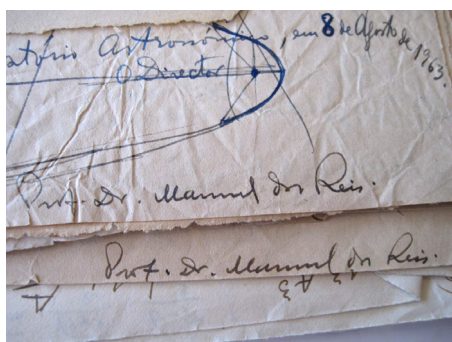 atório Astronómico, em 8 de Agosto de 1963.
O Director
Prof. Dr. Manuel dos Reis.
Prof. Dr. Manuel dos Reis.
A3